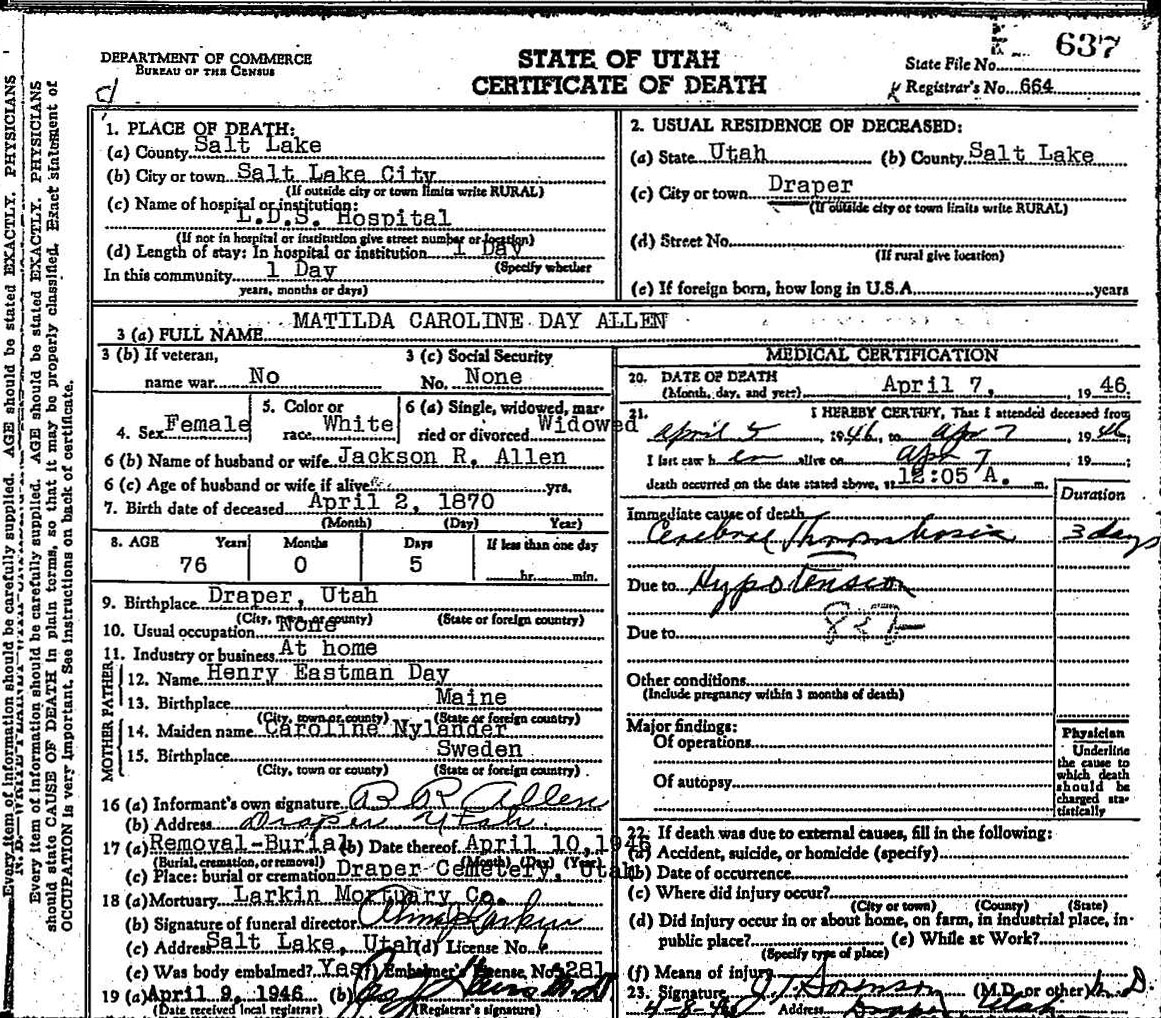 DEPARTMENT OF COMMERCE
BUREAU OF THE CENSUS
STATE OF UTAH
CERTIFICATE OF DEATH
637
State File No.
Registrar's No. 664
1. PLACE OF DEATH:
(a) County Salt Lake
(b) City or town Salt Lake City
(If outside city or town limits write RURAL)
(c) Name of hospital or institution:
L.D.S. Hospital
(If not in hospital or institution give street number or location)
(d) Length of stay: In hospital or institution 1 Day
(Specify whether
In this community 1 Day
years, months or days)
2. USUAL RESIDENCE OF DECEASED:
(a) State Utah (b) County Salt Lake
(c) City or town Draper
(If outside city or town limits write RURAL)
(d) Street No.
(If rural give location)
(e) If foreign born, how long in U.S.A. years
3 (a) FULL NAME MATILDA CAROLINE DAY ALLEN
3 (b) If veteran,
name war No
3 (c) Social Security
No. None
4. Sex Female
5. Color or
race White
6 (a) Single, widowed, mar-
ried or divorced Widowed
6 (b) Name of husband or wife Jackson R. Allen
6 (c) Age of husband or wife if alive yrs.
7. Birth date of deceased April 2, 1870
(Month) (Day) Year)
8. AGE Years Months Days If less than one day
76 0 5 hr. min.
9. Birthplace Draper, Utah
(City, town, or county) (State or foreign country)
10. Usual occupation None
11. Industry or business At home
FATHER
12. Name Henry Eastman Day
13. Birthplace Maine
(City, town or county) (State or foreign country)
MOTHER
14. Maiden name Caroline Nylander
15. Birthplace Sweden
(City, town or county) (State or foreign country)
16 (a) Informant's own signature B R Allen
(b) Address Draper Utah
17 (a) Removal-Burial (b) Date thereof April 10, 1946
(Burial, cremation, or removal) (Month) (Day) (Year)
(c) Place: burial or cremation Draper Cemetery, Utah
18 (a) Mortuary Larkin Mortuary Co.
(b) Signature of funeral director Larkin
(c) Address Salt Lake, Utah (d) License No. 6
(e) Was body embalmed? Yes (f) Embalmer's License, No. 281
19 (a) April 9, 1946 (b)
(Date received local registrar) (Registrar's signature)
MEDICAL CERTIFICATION
20. DATE OF DEATH
(Month, day, and year) April 7, 19 46
21. I HEREBY CERTIFY, That I attended deceased from
April 5, 1946, to Apr 7, 1946;
I last saw h er alive on Apr 7, 19 ;
death occurred on the date stated above, at 12:05 A. m.
Duration
Immediate cause of death
Cerebral Thrombosis 3 days
Due to Hypotension
Due to
Other conditions
(Include pregnancy within 3 months of death)
Major findings:
Of operations
Of autopsy
Physician
Underline
the cause to
which death
should be
charged sta-
tistically
22. If death was due to external causes, fill in the following:
(a) Accident, suicide, or homicide (specify)
(b) Date of occurrence
(c) Where did injury occur?
(City or town) (County) (State)
(d) Did injury occur in or about home, on farm, in industrial place, in-
public place? (e) While at Work?
(Specify type of place)
(f) Means of injury
23. Signature J. J. Sorenson (M.D. or other) M.D.
4-8-46 Address Draper Utah
Every item of information should be carefully supplied. AGE should be stated EXACTLY. PHYSICIANS
Every item of information should be carefully supplied. AGE should be stated EXACTLY. PHYSICIANS
should state CAUSE OF DEATH in plain terms, so that it may be properly classified. Exact statement of
OCCUPATION is very important. See instructions on back of certificate.